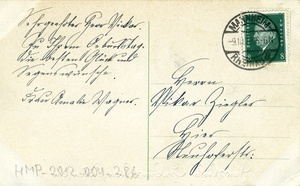 Sehrgeehrter Herr Vikar.
Zu Ihrem Geburtstag
die besten Glück und
Segenswünsche.
Frau Amalie Wagner.
Herrn
Vikar Ziegler
Hier
MANNHEIM
HMP-2012-001-286